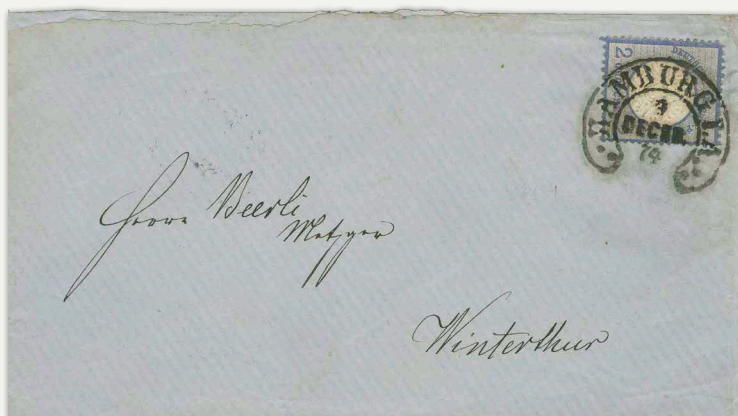 HAMBURG I.A.
3
DECBR.
74
Herrn Beerli
Metzger
Winterthur